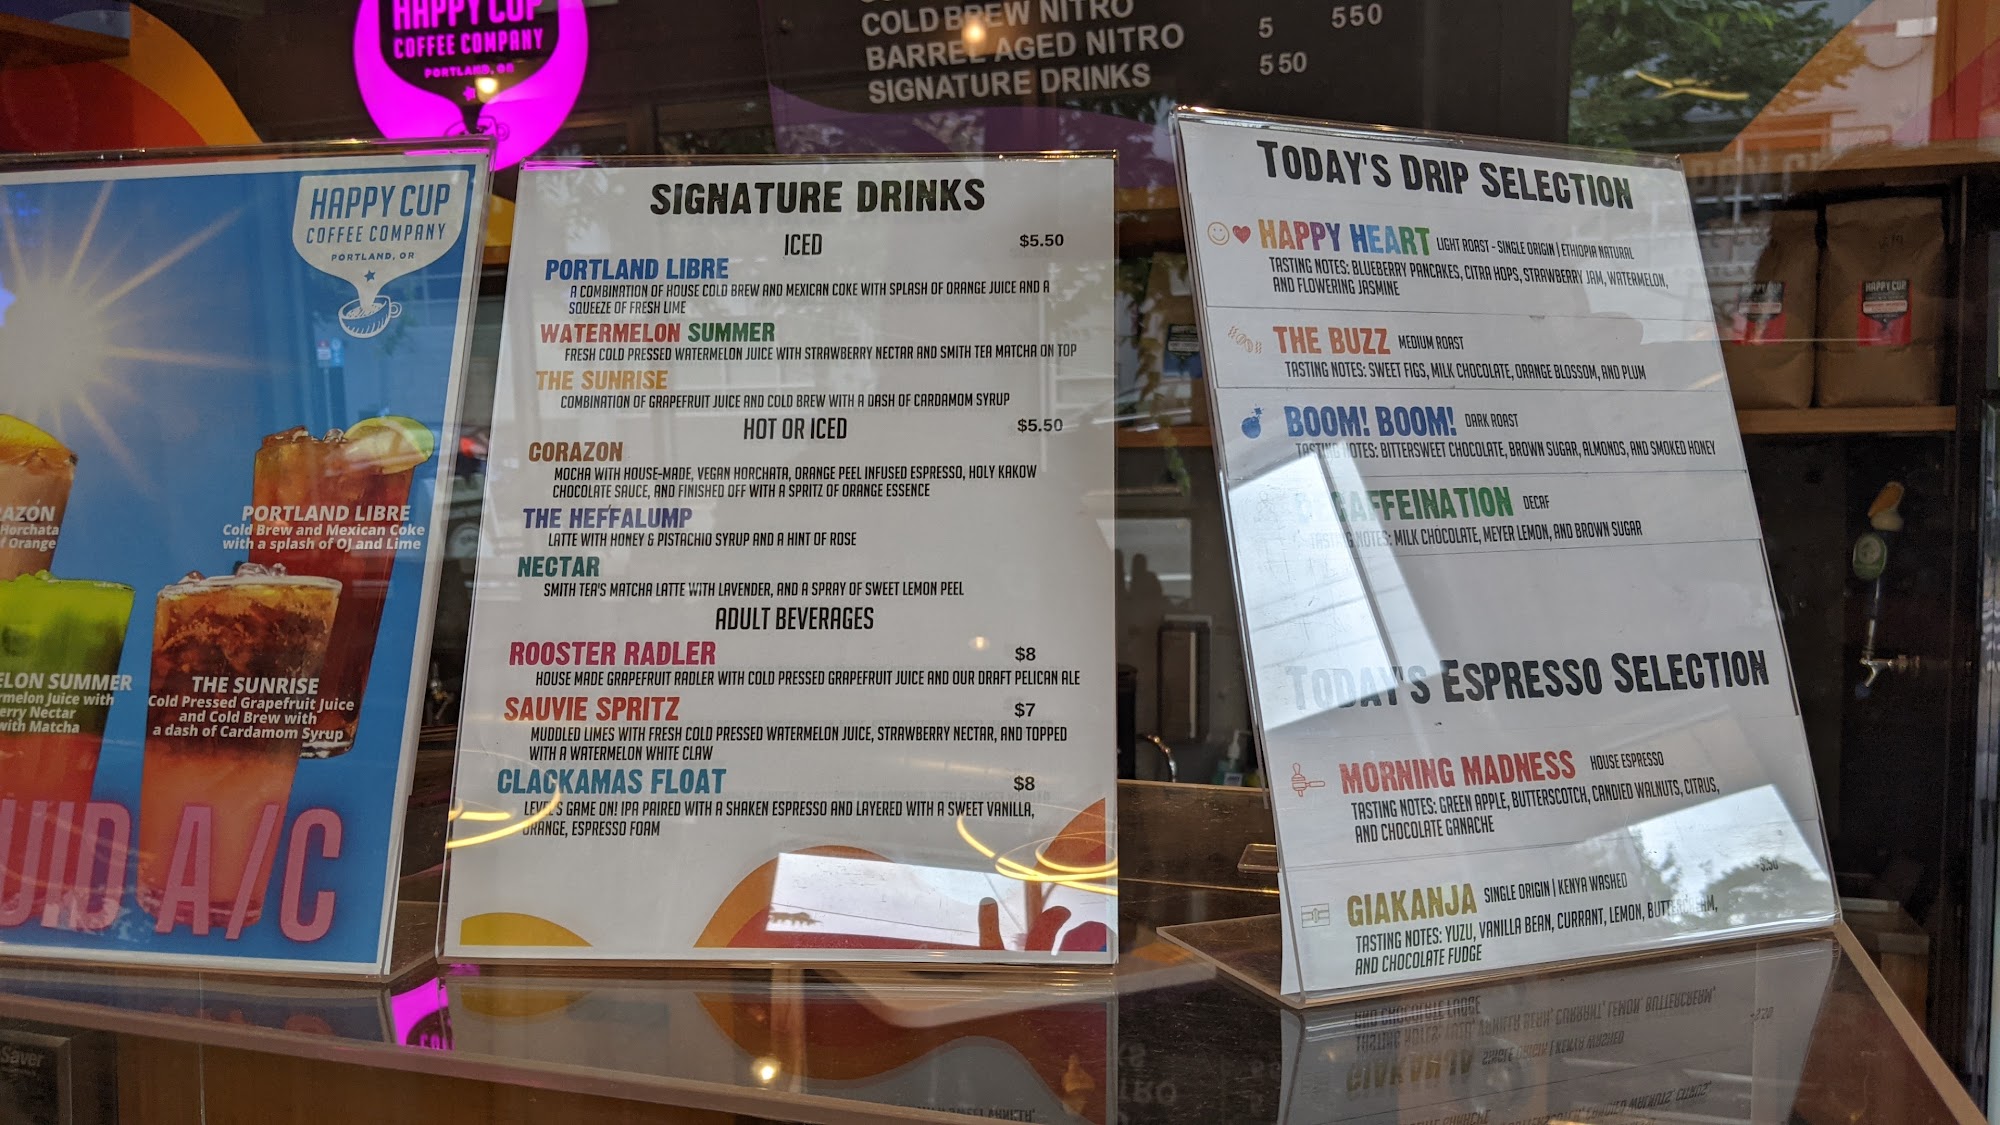 HAPPY CUP
COFFEE COMPANY
PORTLAND, OR
COLD BREW NITRO
BARREL AGED NITRO 5 550
SIGNATURE DRINKS 550
HAPPY CUP
COFFEE COMPANY
PORTLAND, OR
Horchata
Orange
PORTLAND LIBRE
Cold Brew and Mexican Coke
with a splash of OJ and Lime
SUMMER
Juice with
Nectar
with Matcha
THE SUNRISE
Cold Pressed Grapefruit Juice
and Cold Brew with
a dash of Cardamom Syrup
A/C
SIGNATURE DRINKS
ICED $5.50
PORTLAND LIBRE
A COMBINATION OF HOUSE COLD BREW AND MEXICAN COKE WITH SPLASH OF ORANGE JUICE AND A
SQUEEZE OF FRESH LIME
WATERMELON SUMMER
FRESH COLD PRESSED WATERMELON JUICE WITH STRAWBERRY NECTAR AND SMITH TEA MATCHA ON TOP
THE SUNRISE
COMBINATION OF GRAPEFRUIT JUICE AND COLD BREW WITH A DASH OF CARDAMOM SYRUP
HOT OR ICED $5.50
CORAZON
MOCHA WITH HOUSE-MADE, VEGAN HORCHATA, ORANGE PEEL INFUSED ESPRESSO, HOLY KAKOW
CHOCOLATE SAUCE, AND FINISHED OFF WITH A SPRITZ OF ORANGE ESSENCE
THE HEFFALUMP
LATTE WITH HONEY & PISTACHIO SYRUP AND A HINT OF ROSE
NECTAR
SMITH TEA'S MATCHA LATTE WITH LAVENDER, AND A SPRAY OF SWEET LEMON PEEL
ADULT BEVERAGES
ROOSTER RADLER $8
HOUSE MADE GRAPEFRUIT RADLER WITH COLD PRESSED GRAPEFRUIT JUICE AND OUR DRAFT PELICAN ALE
SAUVIE SPRITZ $7
MUDDLED LIMES WITH FRESH COLD PRESSED WATERMELON JUICE, STRAWBERRY NECTAR, AND TOPPED
WITH A WATERMELON WHITE CLAW
CLACKAMAS FLOAT $8
GAME ON! IPA PAIRED WITH A SHAKEN ESPRESSO AND LAYERED WITH A SWEET VANILLA,
ORANGE, ESPRESSO FOAM
TODAY'S DRIP SELECTION
HAPPY HEART LIGHT ROAST - SINGLE ORIGIN | ETHIOPIA NATURAL
TASTING NOTES: BLUEBERRY PANCAKES, CITRA HOPS, STRAWBERRY JAM, WATERMELON,
AND FLOWERING JASMINE
THE BUZZ MEDIUM ROAST
TASTING NOTES: SWEET FIGS, MILK CHOCOLATE, ORANGE BLOSSOM, AND PLUM
BOOM! BOOM! DARK ROAST
TASTING NOTES: BITTERSWEET CHOCOLATE, BROWN SUGAR, ALMONDS, AND SMOKED HONEY
DECAFFEINATION DECAF
TASTING NOTES: MILK CHOCOLATE, MEYER LEMON, AND BROWN SUGAR
TODAY'S ESPRESSO SELECTION
MORNING MADNESS HOUSE ESPRESSO
TASTING NOTES: GREEN APPLE, BUTTERSCOTCH, CANDIED WALNUTS, CITRUS,
AND CHOCOLATE GANACHE
GIAKANJA SINGLE ORIGIN | KENYA WASHED
TASTING NOTES: YUZU, VANILLA BEAN, CURRANT, LEMON, BUTTERCREAM,
AND CHOCOLATE FUDGE
HAPPY CUP
HAPPY CUP
Saver